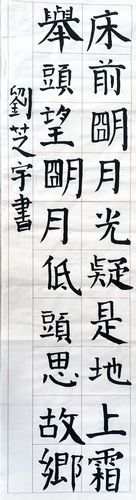 床前朙月光疑是地上霜
舉頭望朙月低頭思故鄉
劉芝宇書